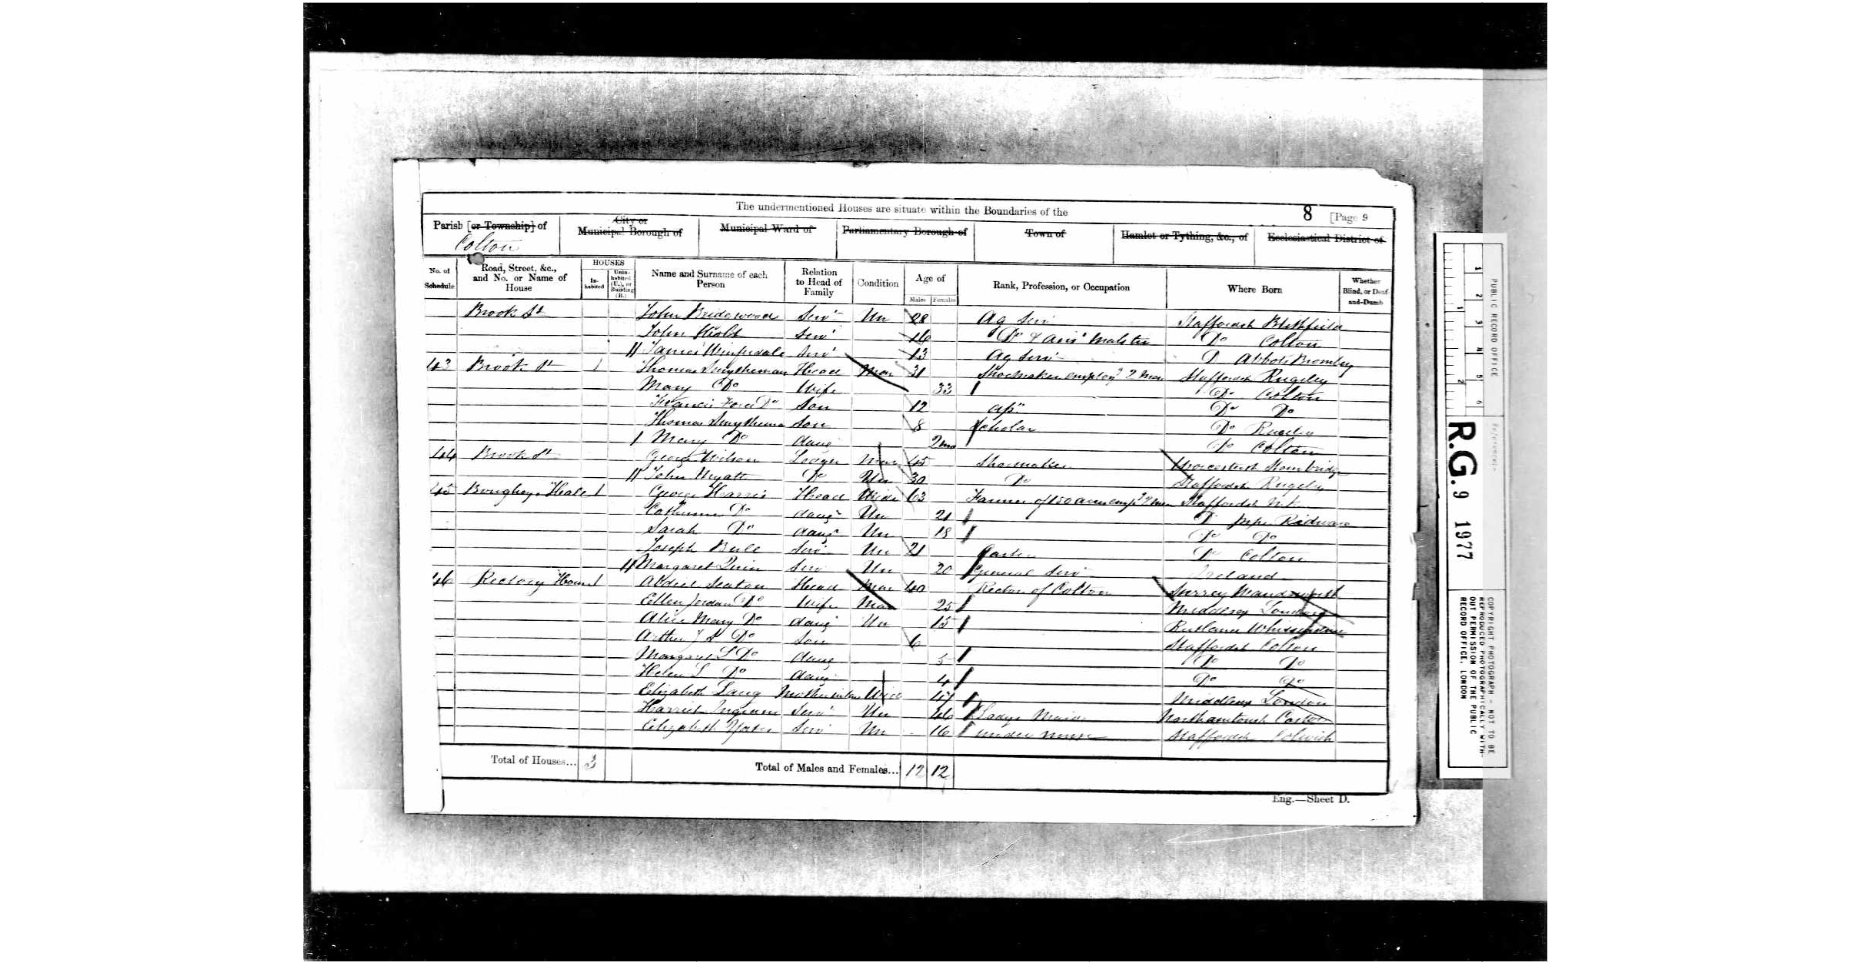 The undermentioned Houses are situate within the Boundaries of the
8 [Page 9
Parish [or Township] of Colton
City or Municipal Borough of
Municipal Ward of
Parliamentary Borough of
Town of
Hamlet or Tything, &c., of
Ecclesiastical District of
No. of Schedule
Road, Street, &c., and No. or Name of House
HOUSES
Inhabited
Uninhabited (U.), or Building (B.)
Name and Surname of each Person
Relation to Head of Family
Condition
Age of
Males Females
Rank, Profession, or Occupation
Where Born
Whether Blind, or Deaf-and-Dumb
Brook St John Serv Un 28 Ag Serv Staffordsh Blithfield
John Serv 16 Do Do Colton
James Serv 13 Ag Serv Do Abbots Bromley
43 Brook St 1 Thomas Smytheman Head Mar 31 Shoemaker employg 2 men Staffordsh Rugeley
Mary Do Wife 33 Do Colton
Francis Do Son 12 Do Do
Thomas Smytheman Son 8 Scholar Do Rugeley
Mary Do daur Do Colton
44 Brook St George Wilson Lodger Mar 45 Shoemaker Worcestersh Stourbridge
John Wyatt Do Un 30 Do Staffordsh Rugeley
45 1 George Harris Head Wid 63 Farmer of 150 acres Staffordsh
Catherine Do daur Un 21 Do Ridware
Sarah Do daur Un 18 Do Do
Joseph Bull Serv Un 21 Carter Do Colton
Margaret Quin Serv Un 20 General Serv Ireland
46 Rectory House 1 Seaton Head Mar 40 Rector of Colton Surrey Wandsworth
Ellen Jordan Do Wife Mar 25 Middlesex London
Alice Mary Do daur Un 15 Rutland
Arthur Do Son 6 Staffordsh Colton
Margaret S Do daur 5 Do Do
Helen S Do daur 4 Do Do
Elizabeth Lang Mother in law Wid 47 Middlesex London
Harriet Ingram Serv Un 46 Ladys Maid Northamptonsh
Elizabeth Yates Serv Un 16 under nurse Staffordsh Colwich
Total of Houses... 3
Total of Males and Females... 12 12
Eng.—Sheet D.
PUBLIC RECORD OFFICE
Reference:-
R.G. 9 1977
COPYRIGHT PHOTOGRAPH - NOT TO BE
REPRODUCED PHOTOGRAPHICALLY WITH-
OUT PERMISSION OF THE PUBLIC
RECORD OFFICE, LONDON